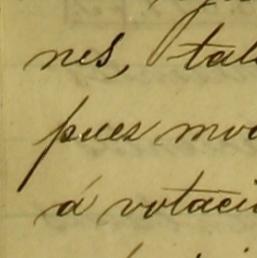 nes, tal
puez mo
á votaci